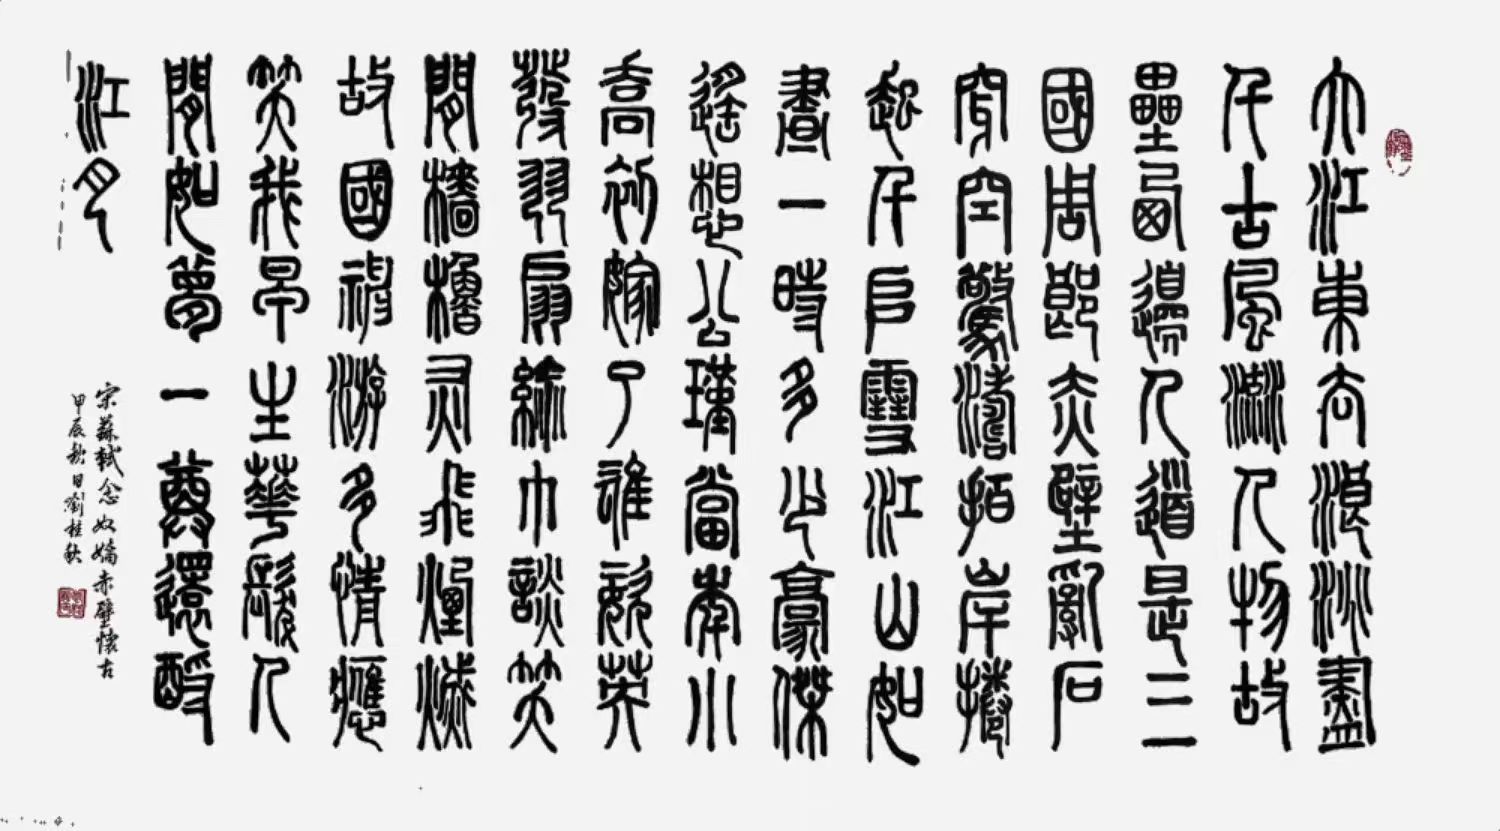 大江東去浪淘盡
千古風流人物故
壘西邊人道是三
國周郎赤壁亂石
穿空驚濤拍岸捲
起千堆雪江山如
畫一時多少豪傑
遙想公瑾當年小
喬初嫁了雄姿英
發羽扇綸巾談笑
間檣櫓灰飛煙滅
故國神游多情應
笑我早生華髮人
間如夢一尊還酹
江月
宋蘇軾念奴嬌赤壁懷古
甲辰秋日劉桂秋